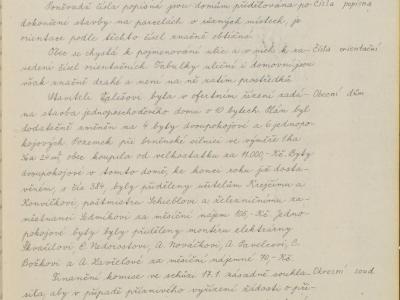 Poněvadž čísla popisná jsou domům přidělována po Čísla popisná
dokončení stavby na parcelách v různých místech, je
orientace podle těchto čísel značně obtížná.
Obec se chystá k pojmenování ulic a v nich k za- Čísla orientační
vedení čísel orientačních. Tabulky uliční i domovní jsou
však značně drahé a není na ně zatím prostředků.
Staviteli Valešovi byla v ofertním řízení zadá- Obecní dům
na stavba jednoposchoďového domu o 10 bytech. Plán byl
dodatečně změněn na 4 byty dvoupokojové a 6 jednopo-
kojových. Pozemek při brněnské silnici ve výměře 1 ha
24 m² obec koupila od velkostatku za 11.000,- Kč. Byty
dvoupokojové v tomto domě, ke konci roku již dosta-
věném, s čís. 384, byly přiděleny učitelům Krejčímu a
Konvičkovi, poštmistru Schieblovi a železničnímu za-
městnanci Sedmíkovi za měsíční nájem 105,- Kč. Jedno-
pokojové byty byly přiděleny montéru elektrárny
Škvařilovi, E. Nedorostovi, A. Nováčkovi, A. Pavelcovi, C.
Božkovi a A. Havířlové za měsíční nájemné 70,- Kč.
Finanční komise ve schůzi 17.1. zásadně souhla- Okresní soud
sila, aby v případě příznivého vyřízení žádosti o pří-